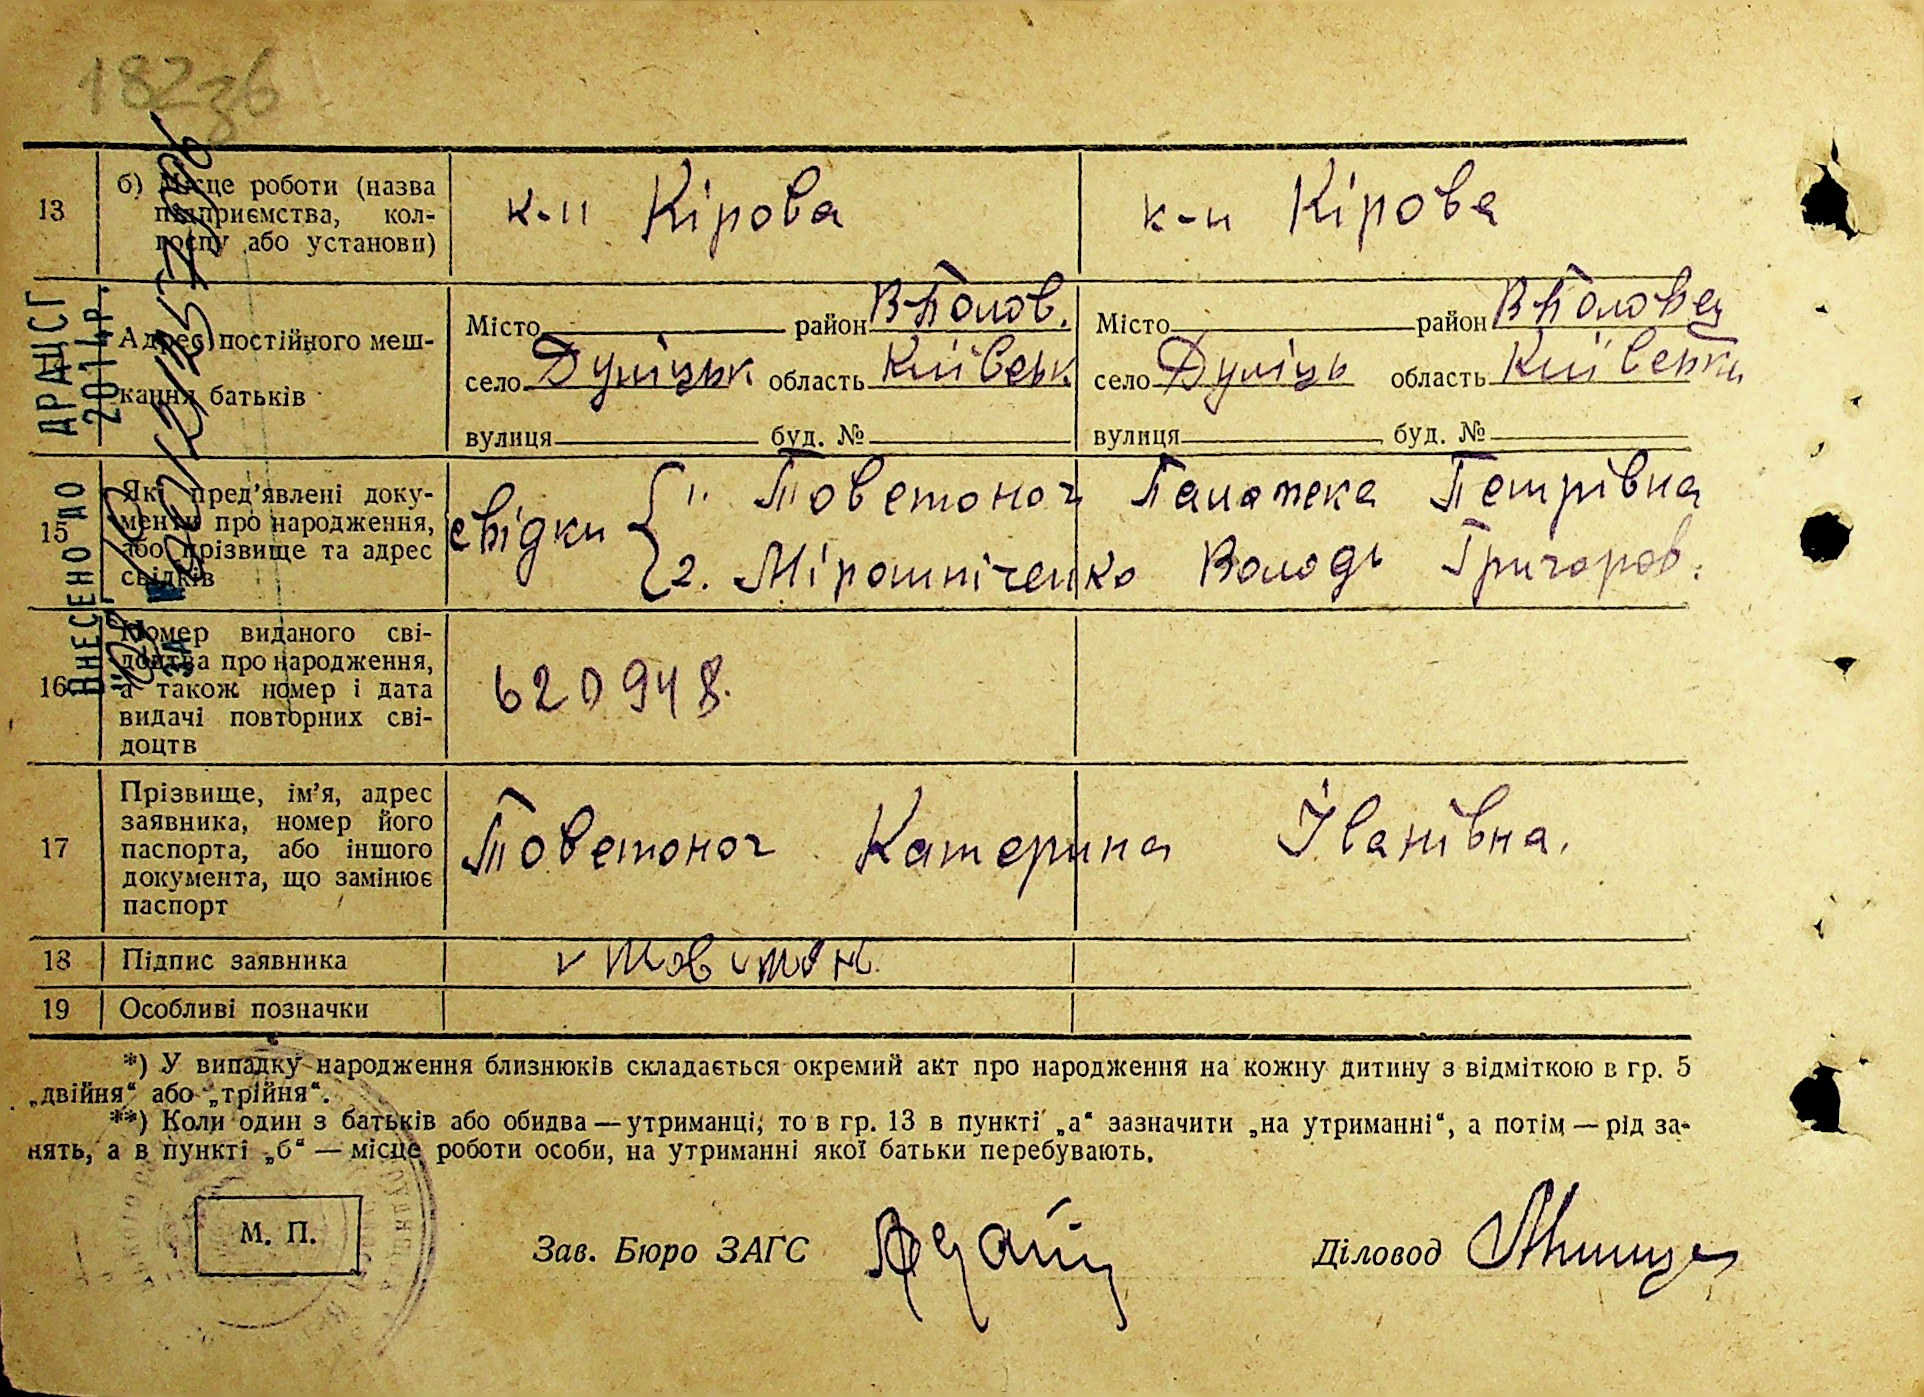 182зб
13
б) Місце роботи (назва
підприємства, кол-
госпу або установи)
к-п Кірова
к-п Кірова
Адрес постійного меш-
кання батьків
Місто район В-Полов.
село Дуліцьк область Київськ
вулиця буд. №
Місто район В-Половец
село Дуліць область Київськи
вулиця буд. №
15
Які пред'явлені доку-
менти про народження,
або прізвище та адрес
свідків
свідки 1. Товстоног Палажка Петрівна
2. Мірошніченко Володь Григоров.
16
Номер виданого сві-
доцтва про народження,
а також номер і дата
видачі повторних сві-
доцтв
620948.
17
Прізвище, ім'я, адрес
заявника, номер його
паспорта, або іншого
документа, що замінює
паспорт
Товстоног Катерина Іванівна.
18 Підпис заявника
19 Особливі позначки
*) У випадку народження близнюків складається окремий акт про народження на кожну дитину з відміткою в гр. 5
„двійня“ або „трійня“.
**) Коли один з батьків або обидва — утриманці, то в гр. 13 в пункті „а“ зазначити „на утриманні“, а потім — рід за-
нять, а в пункті „б“ — місце роботи особи, на утриманні якої батьки перебувають.
М. П.
Зав. Бюро ЗАГС
Діловод
ВНЕСЕНО ДО ДРАЦСГ
2014р.
ЗА №